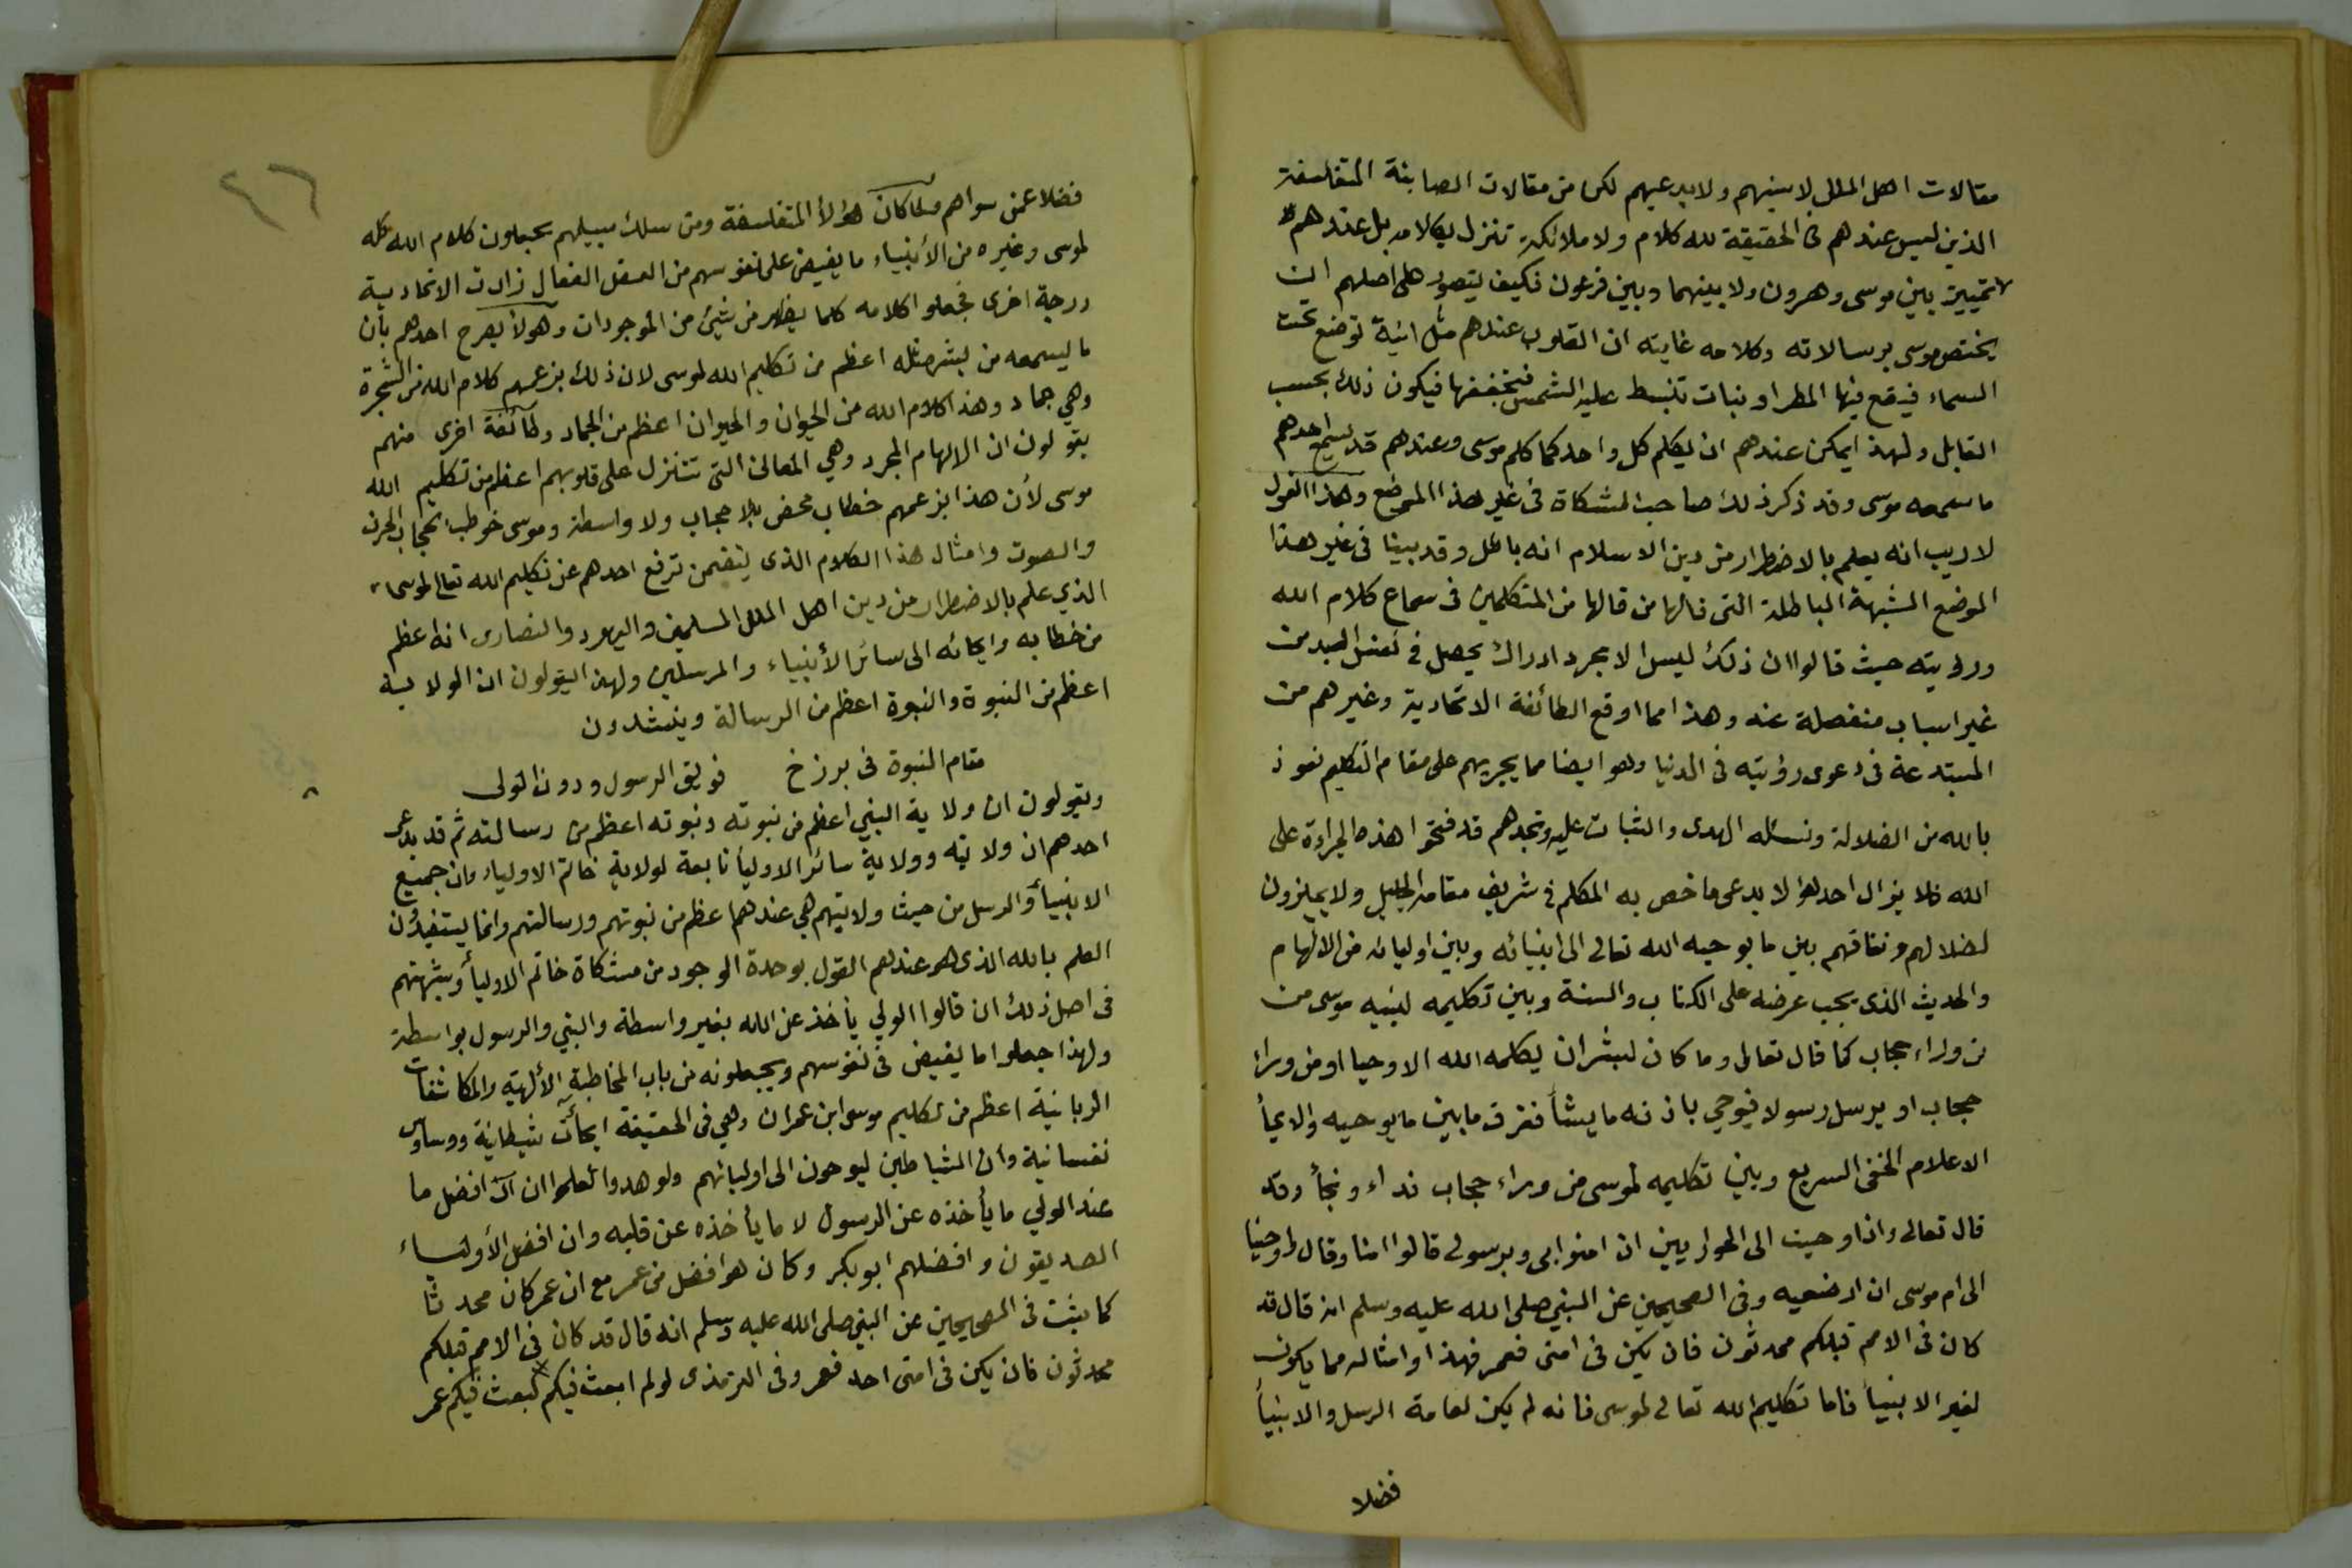 مقالات اهل الملل لا سنيهم ولا بدعيهم لكن من مقالات الصابئة المتفلسفة
الذين ليس عندهم في الحقيقة لله كلام ولا ملائكة تنزل بكلامه بل عندهم
لا تمييز بين موسى وهرون ولا بينهما وبين فرعون فكيف يتصور على اصلهم ان
يختص موسى برسالاته وكلامه غايته ان القلوب عندهم مثل انية توضع تحت
السماء فيقع فيها المطر او نبات تنبسط عليه الشمس فتجففها فيكون ذلك بحسب
القابل ولهذا يمكن عندهم ان يكلم كل واحد كما كلم موسى وعندهم قد يسمع احدهم
ما سمعه موسى وقد ذكر ذلك صاحب المشكاة في غير هذا الموضع وهذا القول
لا ريب انه يعلم بالاضطرار من دين الاسلام انه باطل وقد بينا في غير هذا
الموضع الشبهة الباطلة التي قالها من قالها من المتكلمين في سماع كلام الله
ورؤيته حيث قالوا ان ذلك ليس الا مجرد ادراك يحصل في نفس العبد من
غير اسباب منفصلة عنه وهذا مما اوقع الطائفة الاتحادية وغيرهم من
المبتدعة في دعوى رؤيته في الدنيا وهو ايضا مما يجريهم على مقام التكليم نعوذ
بالله من الضلالة ونسئله الهدى والثبات عليه وتجدهم قد فتحوا هذه الجراءة على
الله فلا يزال احد هؤلا يدعى ما خص به المكلم في شريف مقامه الجليل ولا يميزون
لضلالهم ونفاقهم بين ما يوحيه الله تعالى الى انبيائه وبين اوليائه من الالهام
والحديث الذي يجب عرضه على الكتاب والسنة وبين تكليمه لنبيه موسى من
من وراء حجاب كما قال تعالى وما كان لبشر ان يكلمه الله الا وحيا او من وراء
حجاب او يرسل رسولا فيوحي باذنه ما يشأ ففرق ما بين ما يوحيه والايحأ
الاعلام الخفي السريع وبين تكليمه لموسى من وراء حجاب نداء ونجأ وقد
قال تعالى واذا وحيت الى الحواريين ان امنوا بي وبرسولي قالوا امنا وقال واوحينا
الى ام موسى ان ارضعيه وفي الصحيحين عن النبي صلى الله عليه وسلم انه قال قد
كان في الامم قبلكم محدثون فان يكن في امتي فعمر فهذا وامثاله مما يكون
لغير الانبيأ فاما تكليم الله تعالى لموسى فانه لم يكن لعامة الرسل والانبيأ
فضلا
٤٦
فضلا عمن سواهم ولما كان هؤلأ المتفلسفة ومن سلك سبيلهم يجعلون كلام الله كله
لموسى وغيره من الأنبياء ما يفيض على نفوسهم من العقل الفعال زادت الاتحادية
درجة اخرى فجعلوا كلامه كلما يظهر من شيئ من الموجودات وهولأ يصرح احدهم بأن
ما يسمعه من بشر مثله اعظم من تكليم الله لموسى لان ذلك بزعمهم كلام الله من الشجرة
وهي جماد وهذا كلام الله من الحيوان والحيوان اعظم من الجماد وطائفة اخرى منهم
يقولون ان الالهام المجرد وهي المعاني التي تتنزل على قلوبهم اعظم من تكليم الله
موسى لأن هذا بزعمهم خطاب محض بلا حجاب ولا واسطة وموسى خوطب بحجاب الحرف
والصوت وامثال هذا الكلام الذي يتضمن ترفع احدهم عن تكليم الله تعالى لموسى
الذي علم بالاضطرار من دين اهل الملل المسلمين واليهود والنصارى انه اعظم
من خطابه وايحائه الى سائر الأنبياء والمرسلين ولهذا يقولون ان الولاية
اعظم من النبوة والنبوة اعظم من الرسالة وينشدون
مقام النبوة في برزخ فويق الرسول ودون الولى
ويقولون ان ولاية النبي اعظم من نبوته ونبوته اعظم من رسالته ثم قد يدعى
احدهم ان ولايته وولاية سائر الاوليأ تابعة لولاية خاتم الاولياء وان جميع
الانبيأ والرسل من حيث ولايتهم هي عندهم اعظم من نبوتهم ورسالتهم وانما يستفيدون
العلم بالله الذي هو عندهم القول بوحدة الوجود من مشكاة خاتم الاوليأ وشبهتهم
في اصل ذلك ان قالوا الولي يأخذ عن الله بغير واسطة والنبي والرسول بواسطة
ولهذا جعلوا ما يفيض في نفوسهم ويجعلونه من باب المخاطبة الألهية والمكاشفات
الربانية اعظم من تكليم موسى ابن عمران وهي في الحقيقة ايحائت شيطانية ووساوس
نفسانية وان الشياطين ليوحون الى اوليائهم ولو هدوا لعلموا ان افضل ما
عند الولي ما يأخذه عن الرسول لا ما يأخذه عن قلبه وان افضل الأولياء
الصديقون وافضلهم ابو بكر وكان هو افضل من عمر مع ان عمر كان محدثا
كما ثبت في الصحيحين عن النبي صلى الله عليه وسلم انه قال قد كان في الامم قبلكم
محدثون فان يكن في امتى احد فعمر وفي الترمذي لو لم ابعث فيكم لبعث فيكم عمر